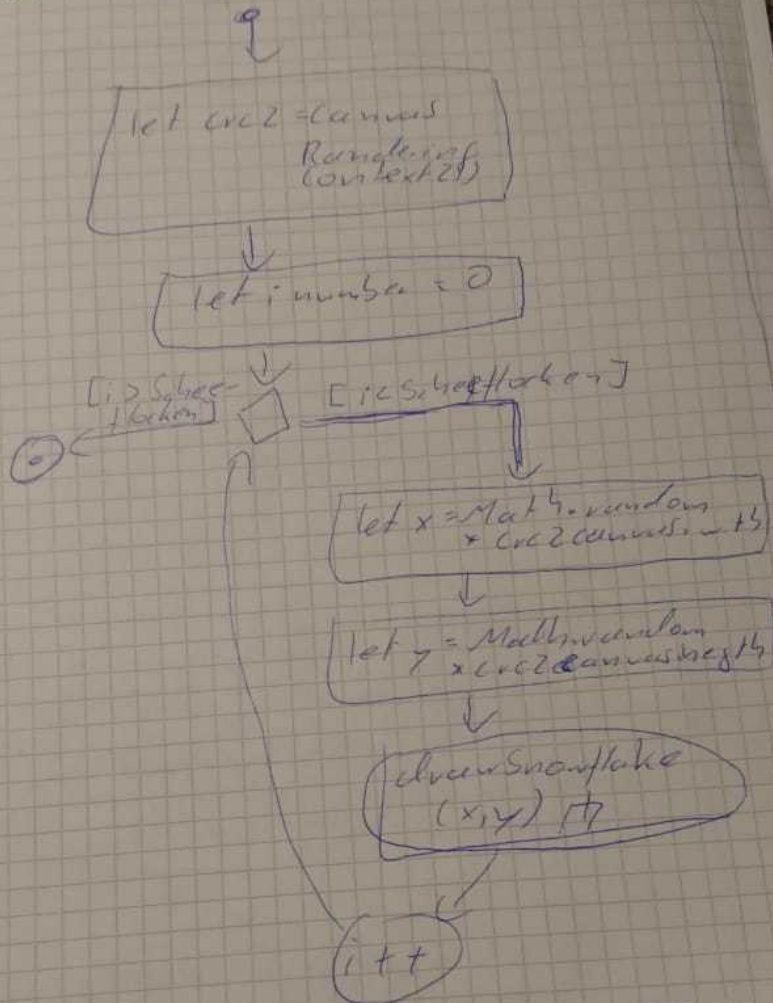 let crc2 = Canvas
Rendering
Context2D
let i number = 0
[i > Schee-
flocken]
[i < Scheeflocken]
let x = Math.random
* crc2 canvas.
let y = Math.random
* crc2 canvas hegth
drawSnowflake
(x,y)
i++